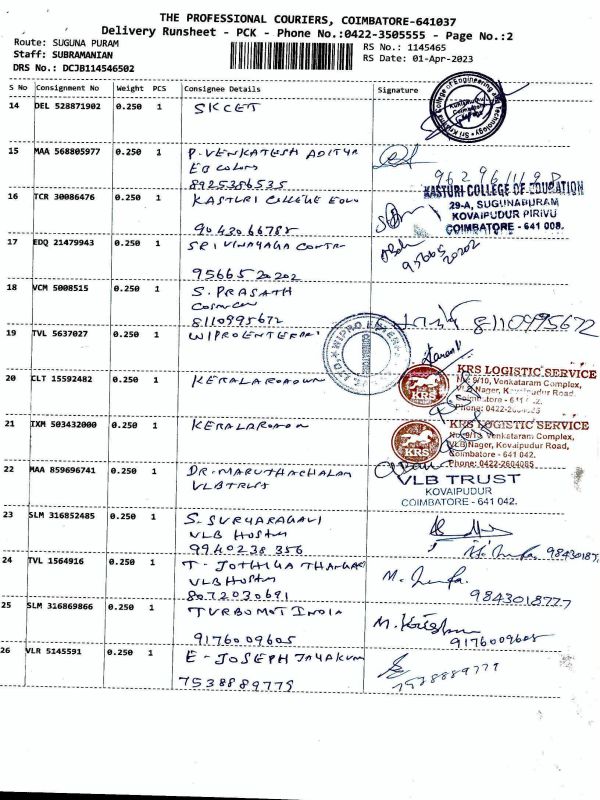 THE PROFESSIONAL COURIERS, COIMBATORE-641037
Delivery Runsheet - PCK - Phone No.:0422-3505555 - Page No.:2
Route: SUGUNA PURAM
RS No.: 1145465
Staff: SUBRAMANIAN
RS Date: 01-Apr-2023
DRS No.: DCJB114546502
S No Consignment No Weight PCS Consignee Details Signature
14 DEL 528871902 0.250 1 SKCET
15 MAA 568805977 0.250 1 P. VENKATESH ADITYA
EB Colony
8925386535
9629611198
16 TCR 30086476 0.250 1 KASTURI COLLEGE EDU
9043066788
KASTURI COLLEGE OF EDUCATION
29-A, SUGUNAPURAM
KOVAIPUDUR PIRIVU
COIMBATORE - 641 008.
17 EDQ 21479943 0.250 1 SRI VINAYAGA CONTR
9566520202
95665 20202
18 VCM 5008515 0.250 1 S. PRASATH
8110995672
8110995672
19 TVL 5637027 0.250 1 WIPRO ENTERPRI
20 CLT 15592482 0.250 1 KERALA ROADWN
KRS LOGISTIC SERVICE
No: 9/10, Venkataram Complex,
VLB Nager, Kovaipudur Road,
Coimbatore - 641 042.
Phone: 0422-2604085
21 IXM 503432000 0.250 1 KERALA ROADWN
KRS LOGISTIC SERVICE
No: 9/10, Venkataram Complex,
VLB Nager, Kovaipudur Road,
Coimbatore - 641 042.
Phone: 0422-2604085
22 MAA 859696741 0.250 1 DR. MARUTHACHALAM
VLB TRUST
VLB TRUST
KOVAIPUDUR
COIMBATORE - 641 042.
23 SLM 316852485 0.250 1 S. SURYARAGAVI
VLB Hostm
9940238356
24 TVL 1564916 0.250 1 T. JOTHIGA THANGA
VLB Hostm
8072030691
9843018777
25 SLM 316869866 0.250 1 TURBOMOT INDIA
9176009605
M. Krishn
9176009605
26 VLR 5145591 0.250 1 E - JOSEPH JAYAKUM
7538889779
7538889779